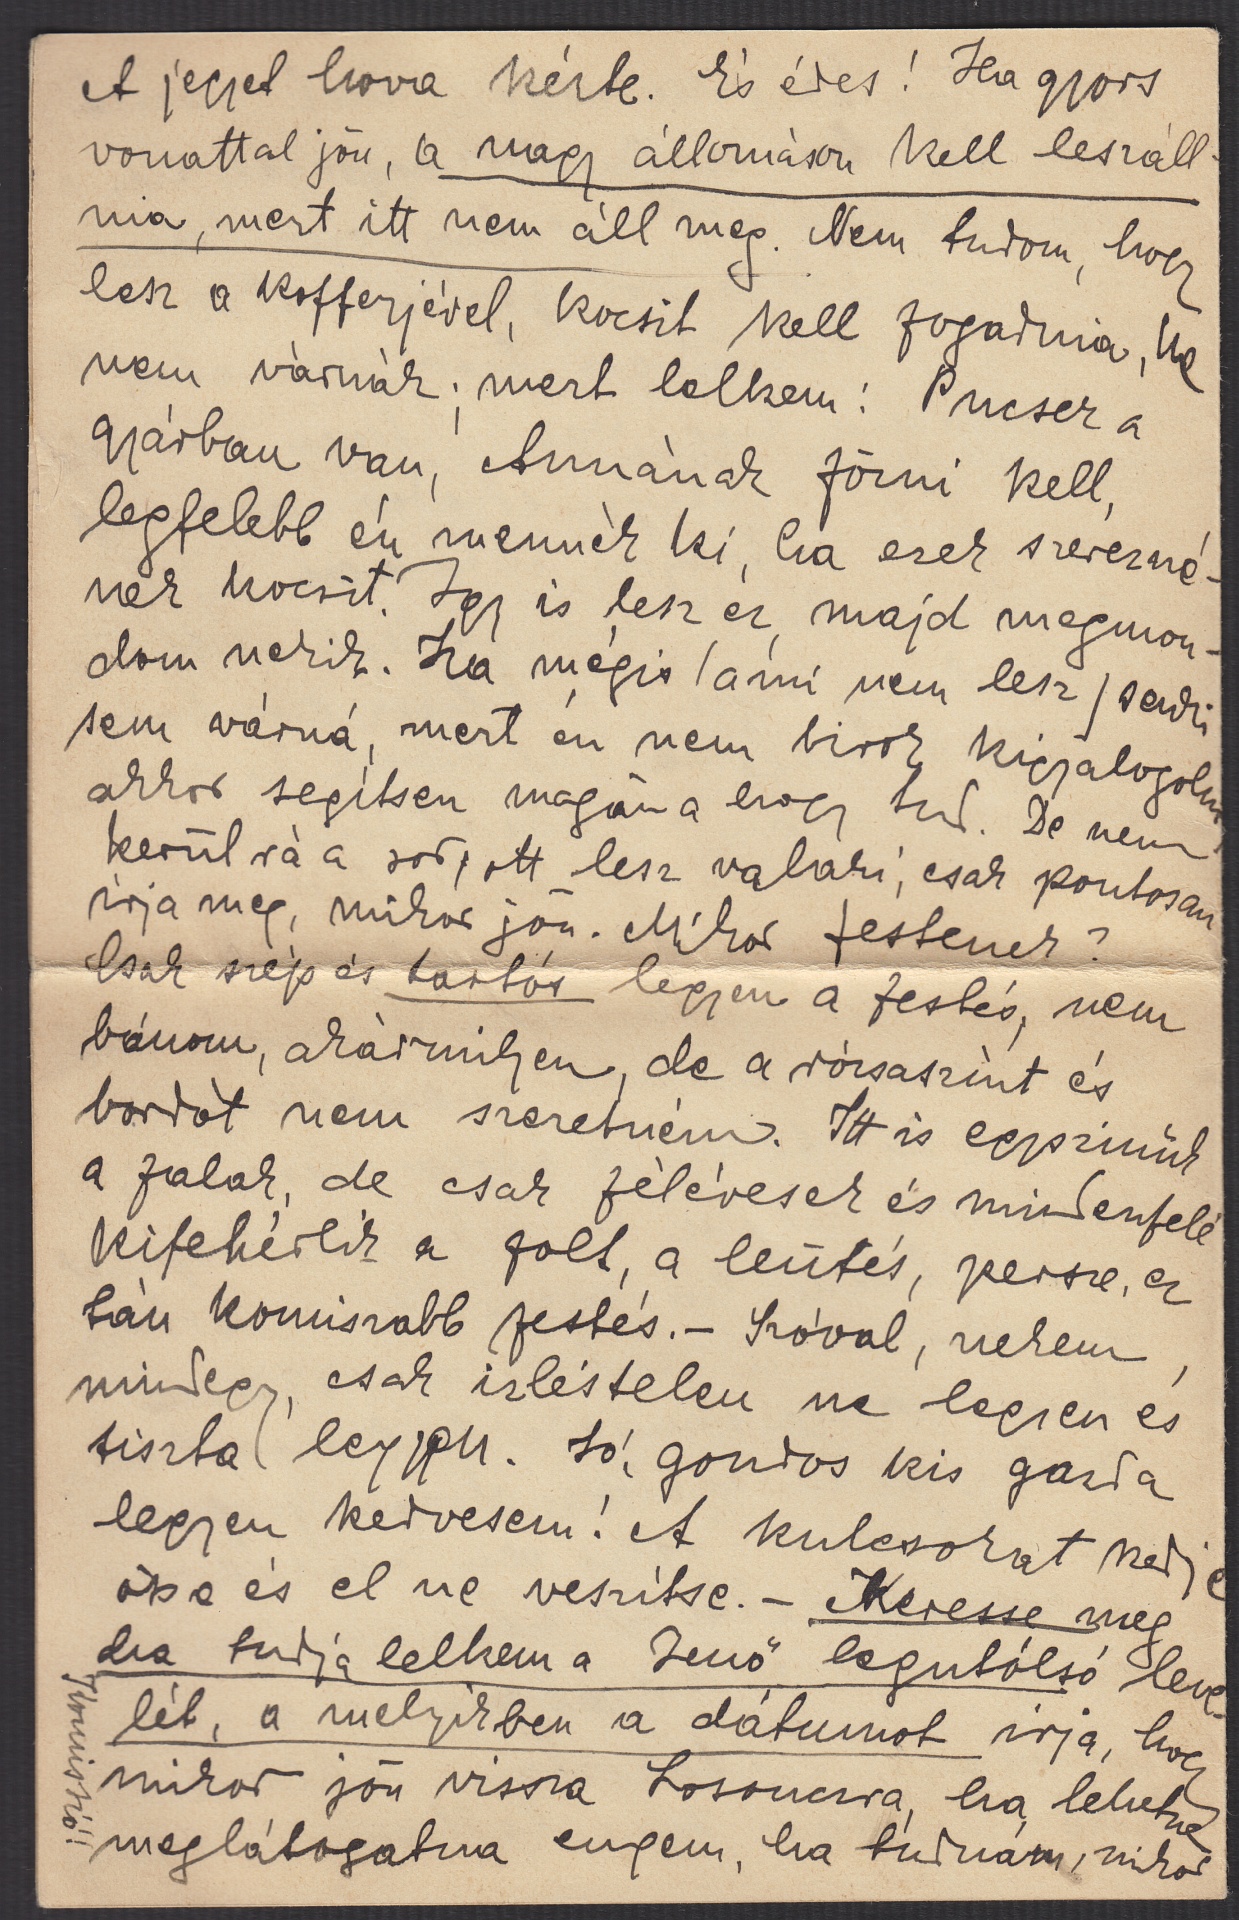 A jegyet hova kérte. És édes! Ha gyors
vonattal jön, a nagy állomáson kell leszáll-
nia, mert itt nem áll meg. Nem tudom, hogy
lesz a kofferjével, kocsit kell fogadnia, ha
nem várnák; mert lelkem! Pucser a
gyárban van, Annának főzni kell,
legfelebb én mennék ki, ha ezek szerezné-
nek kocsit. Igy is lesz ez, majd megmon-
dom nekik. Ha mégis /ami nem lesz/ senki
sem várná, mert én nem birok kigyalogolni,
akkor segítsen magán a hogy tud. De nem
kerül rá a sor, ott lesz valaki, csak pontosan
irja meg, mikor jön. Mikor festenek?
Csak szép és tartós legyen a festés, nem
bánom, akármilyen, de a rózsaszint és
bordót nem szeretném. Itt is egyszinük
a falak, de csak félévesek és mindenfelé
kifehérlik a folt, a leütés, persze, ez
tán komiszabb festés. – Szóval, nekem
mindegy, csak izléstelen ne legyen és
tiszta legyen. Jó, gondos kis gazda
legyen kedvesem! A kulcsokat kedje
össe és el ne veszítse. – Keresse meg
ha tudja lelkem a Jenő legutólsó leve-
lét, a melyikben a dátumot irja, hogy
mikor jön vissza Losonczra, ha lehetne
meglátogatna engem, ha tudnám, mikor